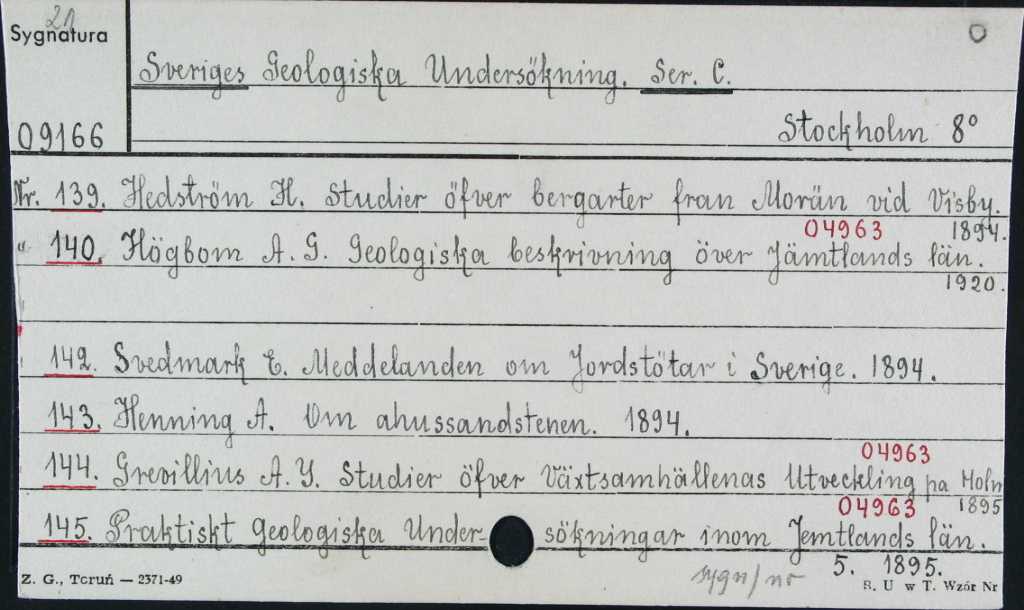 21
Sygnatura
Sveriges Geologiska Undersökning. Ser. C.
Stockholm 8°
09166
Nr. 139. Hedström H. Studier öfver bergarter fran Morän vid Visby.
04963 1894.
" 140. Högbom A. G. Geologiska beskrivning över Jämtlands län.
1920.
142. Svedmark E. Meddelanden om Jordstötar i Sverige. 1894.
143. Henning A. Om ahussandstenen. 1894.
04963
144. Grevillius A. Y. Studier öfver Växtsamhällenas Utveckling pa Holm
04963 1895
145. Praktiskt Geologiska Under- sökningar inom Jemtlands län.
5. 1895.
Z. G., Toruń — 2371-49
sygn/nr
B. U w T. Wzór Nr